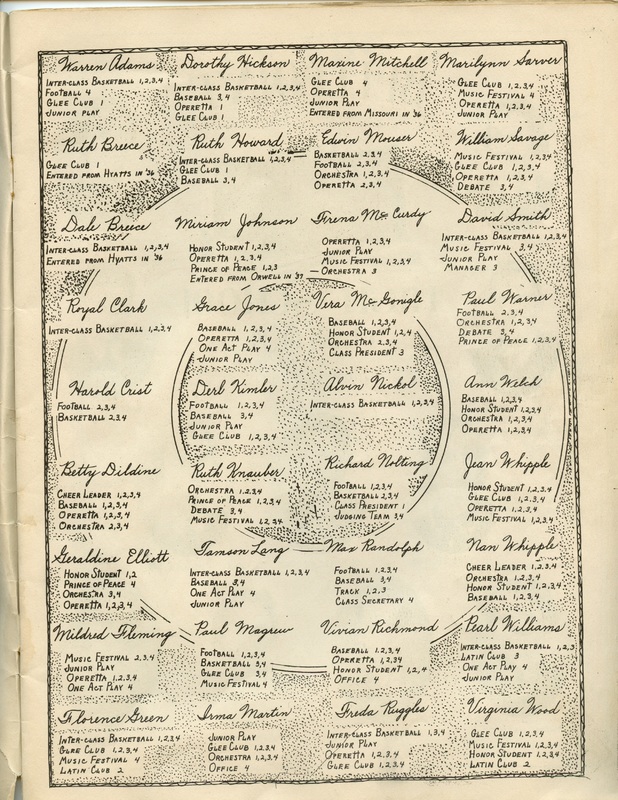 Warren Adams
Inter-Class Basketball 1,2,3,4
Football 4
Glee Club 1
Junior Play
Dorothy Hickson
Inter-Class Basketball 1,2,3,4
Baseball 3,4
Operetta 1
Glee Club 1
Maxine Mitchell
Glee Club 4
Operetta 4
Junior Play
Entered from Missouri in '36
Marilynn Sarver
Glee Club 1,2,3,4
Music Festival 4
Operetta 1,2,3,4
Junior Play
Ruth Breece
Glee Club 1
Entered from Hyatts in '36
Ruth Howard
Inter-Class Basketball 1,2,3,4
Glee Club 1
Baseball 3,4
Edwin Mouser
Basketball 2,3,4
Football 2,3,4
Orchestra 1,2,3,4
Operetta 2,3,4
William Savage
Music Festival 1,2,3,4
Glee Club 1,2,3,4
Operetta 1,2,3,4
Debate 3,4
Dale Breece
Inter-Class Basketball 1,2,3,4
Entered from Hyatts in '36
Miriam Johnson
Honor Student 1,2,3,4
Operetta 1,2,3,4
Prince of Peace 1,2,3
Entered from Orwell in '37
Frena McCurdy
Operetta 1,2,3,4
Junior Play
Music Festival 1,2,3,4
Orchestra 3
David Smith
Inter-Class Basketball 1,2,3,4
Music Festival 3,4
Junior Play
Manager 3
Royal Clark
Inter-Class Basketball 1,2,3,4
Grace Jones
Baseball 1,2,3,4
Operetta 1,2,3,4
One Act Play 4
Junior Play
Vera McGonigle
Baseball 1,2,3,4
Honor Student 1,2,4
Orchestra 2,3,4
Class President 3
Paul Warner
Football 2,3,4
Orchestra 1,2,3,4
Debate 3,4
Prince of Peace 1,2,3,4
Harold Crist
Football 2,3,4
Basketball 2,3,4
Derl Kimler
Football 1,2,3,4
Baseball 3,4
Junior Play
Glee Club 1,2,3,4
Alvin Nickol
Inter-Class Basketball 1,2,3,4
Ann Welch
Baseball 1,2,3,4
Honor Student 1,2,3,4
Orchestra 1,2,3,4
Operetta 1,2,3,4
Betty Dildine
Cheer Leader 1,2,3,4
Baseball 1,2,3,4
Operetta 1,2,3,4
Orchestra 2,3,4
Ruth Knauber
Orchestra 1,2,3,4
Prince of Peace 1,2,3,4
Debate 3,4
Music Festival 1,2,3,4
Richard Nolting
Football 1,2,3,4
Basketball 2,3,4
Class President 1
Judging Team 3,4
Jean Whipple
Honor Student 1,2,3,4
Glee Club 1,2,3,4
Operetta 1,2,3,4
Music Festival 1,2,3,4
Geraldine Elliott
Honor Student 1,2
Prince of Peace 4
Orchestra 3,4
Operetta 1,2,3,4
Tamson Lang
Inter-Class Basketball 1,2,3,4
Baseball 3,4
One Act Play 4
Junior Play
Max Randolph
Football 1,2,3,4
Baseball 3,4
Track 1,2,3
Class Secretary 4
Nan Whipple
Cheer Leader 1,2,3,4
Orchestra 1,2,3,4
Honor Student 1,2,3,4
Baseball 1,2,3,4
Mildred Fleming
Music Festival 2,3,4
Junior Play
Operetta 1,2,3,4
One Act Play 4
Paul Magrew
Football 1,2,3,4
Basketball 3,4
Glee Club 3,4
Music Festival 4
Vivian Richmond
Baseball 1,2,3,4
Operetta 1,2,3,4
Honor Student 1,2,4
Office 4
Pearl Williams
Inter-Class Basketball 1,2,3
Latin Club 3
One Act Play 4
Junior Play
Florence Green
Inter-Class Basketball 1,2,3,4
Glee Club 1,2,3,4
Music Festival 4
Latin Club 2
Irma Martin
Junior Play
Glee Club 1,2,3,4
Orchestra 1,2,3,4
Office 4
Freda Ruggles
Inter-Class Basketball 1,3,4
Junior Play
Operetta 1,2,3,4
Glee Club 1,2,3,4
Virginia Wood
Glee Club 1,2,3,4
Music Festival 1,2,3,4
Honor Student 1,2,3,4
Latin Club 2